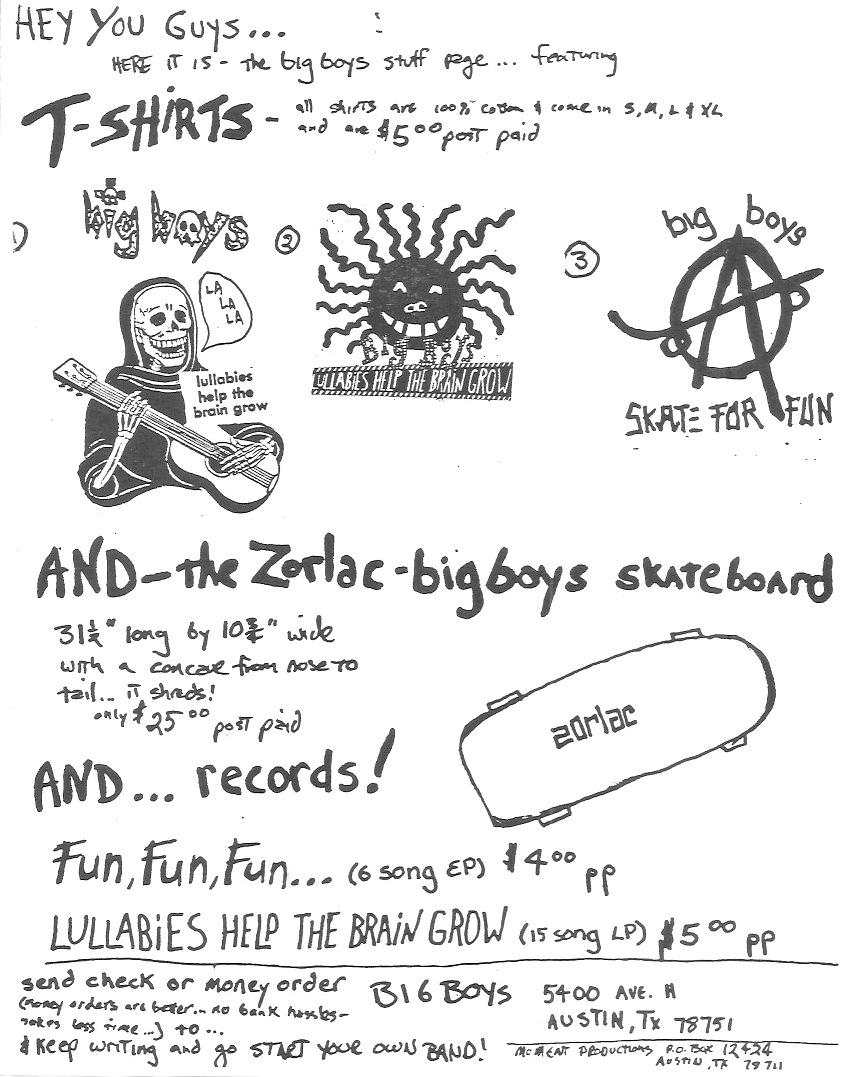 HEY YOU GUYS...
HERE IT IS - the big boys stuff page... featuring
T-SHIRTS - all shirts are 100% cotton & come in S, M, L & XL
and are $5.00 post paid
1)
big boys
LA
LA
LA
lullabies
help the
brain grow
2
BIG BOYS
LULLABIES HELP THE BRAIN GROW
3
big boys
SKATE FOR FUN
AND - the Zorlac - big boys skateboard
31 1/4" long by 10 3/4" wide
with a concave from nose to
tail... it shreds!
only $25.00 post paid
zorlac
AND... records!
Fun, Fun, Fun... (6 song EP) $4.00 pp
LULLABIES HELP THE BRAIN GROW (15 song LP) $5.00 pp
send check or money order
(money orders are better... no bank hassles -
takes less time...) to...
BIG BOYS
5400 AVE. H
AUSTIN, TX 78751
& KEEP WRITING and go START YOUR OWN BAND!
MOMENT PRODUCTIONS P.O. BOX 12424
AUSTIN, TX 78711